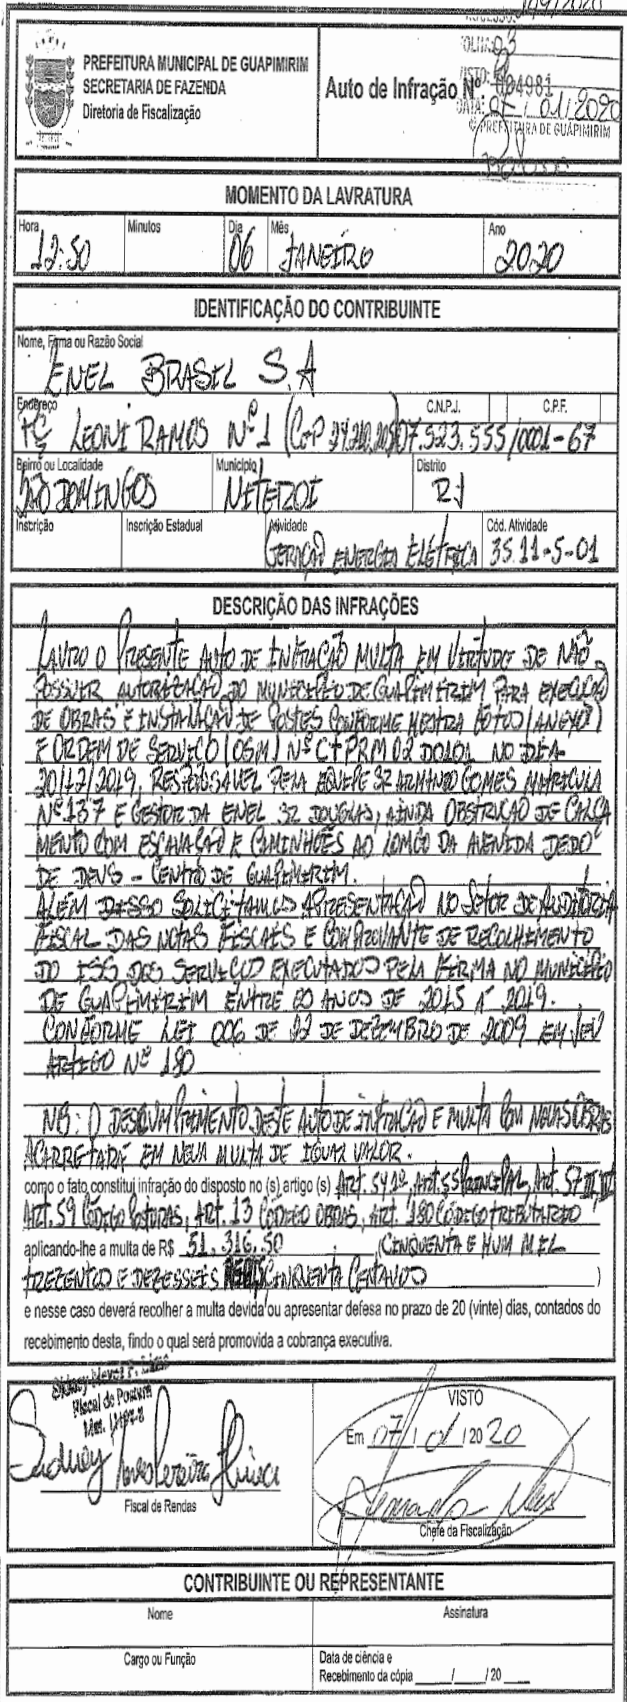 149/2020
FOLHA: 03
PREFEITURA MUNICIPAL DE GUAPIMIRIM
SECRETARIA DE FAZENDA
Diretoria de Fiscalização
Auto de Infração Nº 004981
VISTO:
DATA: 07/01/2020
© PREFEITURA DE GUAPIMIRIM
MOMENTO DA LAVRATURA
Hora Minutos Dia Mês Ano
12:50 06 JANEIRO 2020
IDENTIFICAÇÃO DO CONTRIBUINTE
Nome, Firma ou Razão Social
ENEL BRASIL S.A
Endereço C.N.P.J. C.P.F.
PÇ LEONI RAMOS Nº 1 (CEP 24.210.205) 07.523.555/0001-67
Bairro ou Localidade Município Distrito
SÃO DOMINGOS NITEROI RJ
Inscrição Inscrição Estadual Atividade Cód. Atividade
GERAÇÃO ENERGIA ELÉTRICA 35.11-5-01
DESCRIÇÃO DAS INFRAÇÕES
LAVRO O PRESENTE AUTO DE INFRAÇÃO MULTA EM VIRTUDE DE NÃO
POSSUIR AUTORIZAÇÃO DO MUNICÍPIO DE GUAPIMIRIM PARA EXECUÇÃO
DE OBRAS E INSTALAÇÃO DE POSTES CONFORME MOSTRA FOTOS (ANEXOS)
E ORDEM DE SERVIÇO (OSM) Nº NO DIA
20/12/2019, RESPONSAVEL PELA EQUIPE SR ARMANDO GOMES MATRICULA
Nº 137 E GESTOR DA ENEL SR DOUGLAS, AINDA OBSTRUÇÃO DE CALÇA
MENTO COM ESCAVAÇÃO E CAMINHÕES AO LONGO DA AVENIDA DEDO
DE DEUS - CENTRO DE GUAPIMIRIM.
ALÉM DISSO SOLICITAMOS APRESENTAÇÃO NO SETOR DE AUDITORIA
FISCAL DAS NOTAS FISCAIS E COMPROVANTE DE RECOLHIMENTO
DO ISS DOS SERVIÇOS EXECUTADOS PELA FIRMA NO MUNICÍPIO
DE GUAPIMIRIM ENTRE OS ANOS DE 2015 A 2019.
CONFORME LEI 006 DE 22 DE DEZEMBRO DE 2009 EM SEU
ARTIGO Nº 180
NB: O DESCUMPRIMENTO DESTE AUTO DE INFRAÇÃO E MULTA COM NOVAS OBRAS
ACARRETARÁ EM NOVA MULTA DE IGUAL VALOR.
como o fato constitui infração do disposto no (s) artigo (s) ART. 54 1º, ART. 55 PRINCIPAL, ART. 57
ART. 59 CÓDIGO POSTURAS, ART. 13 CÓDIGO OBRAS, ART. 180 CÓDIGO TRIBUTARIO
aplicando-lhe a multa de R$ 51.316,50 (CINQUENTA E HUM MIL
TREZENTOS E DEZESSEIS REAIS CINQUENTA CENTAVOS)
e nesse caso deverá recolher a multa devida ou apresentar defesa no prazo de 20 (vinte) dias, contados do
recebimento desta, findo o qual será promovida a cobrança executiva.
Fiscal de Postura
Fiscal de Rendas
VISTO
Em 07/01/2020
Chefe da Fiscalização
CONTRIBUINTE OU REPRESENTANTE
Nome Assinatura
Cargo ou Função Data de ciência e
Recebimento da cópia ___/___/20___